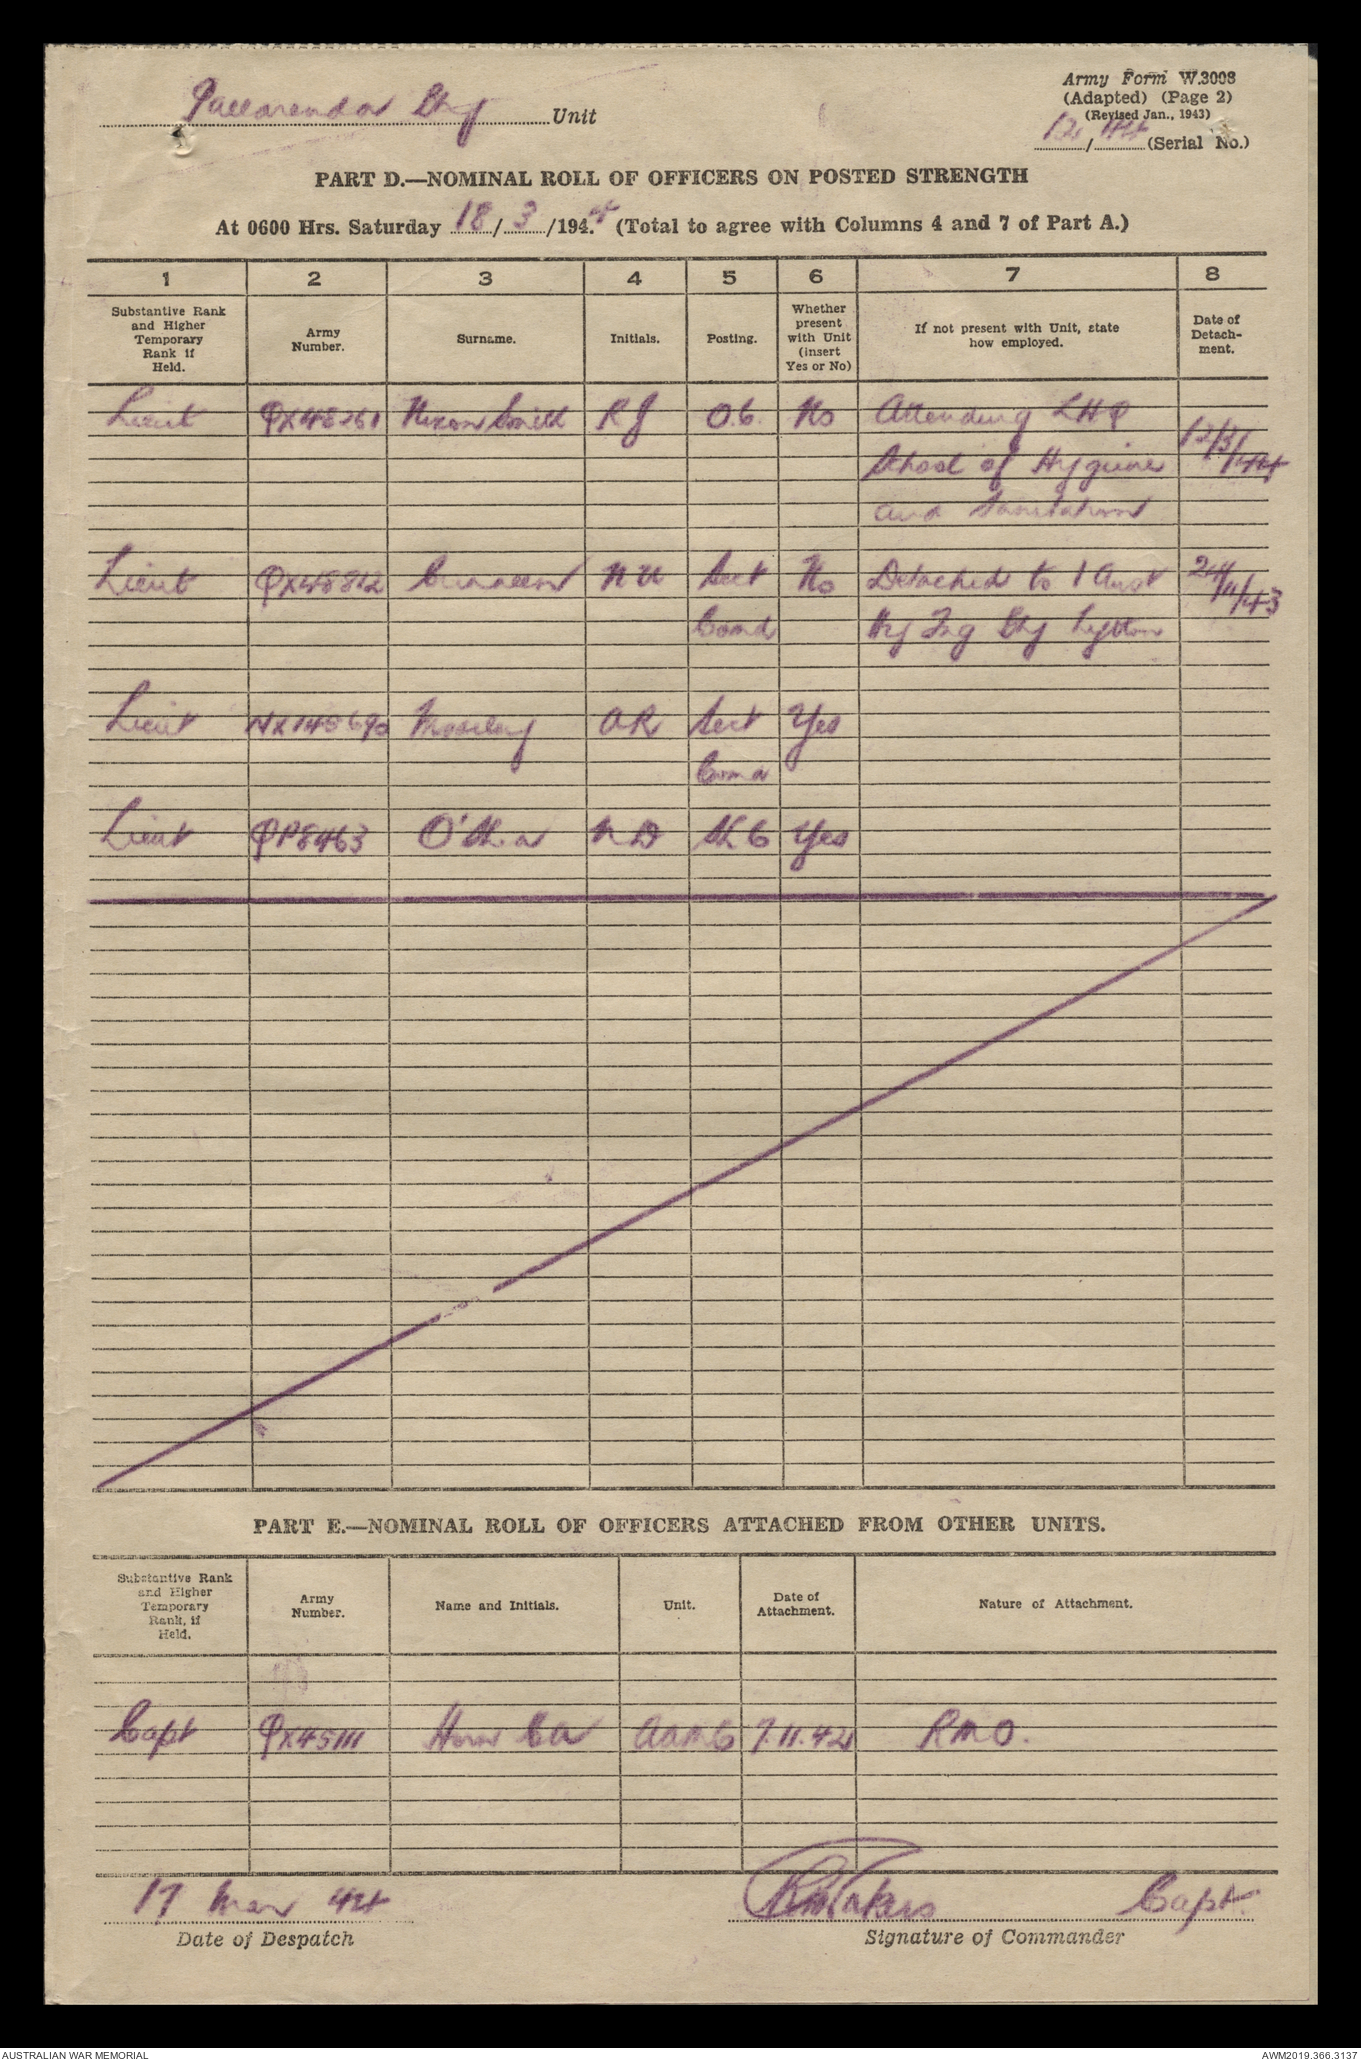 Pallarenda Bty Unit
Army Form W.3008
(Adapted) (Page 2)
(Revised Jan., 1943)
12/44 (Serial No.)
PART D.—NOMINAL ROLL OF OFFICERS ON POSTED STRENGTH
At 0600 Hrs. Saturday 18/3/1944 (Total to agree with Columns 4 and 7 of Part A.)
1 2 3 4 5 6 7 8
Substantive Rank and Higher Temporary Rank if Held. Army Number. Surname. Initials. Posting. Whether present with Unit (insert Yes or No) If not present with Unit, state how employed. Date of Detach-ment.
Lieut QX48261 Nixon Smith RJ O.C. No Attending LHQ 12/3/44
School of Hygiene
and Sanitation
Lieut QX48812 Sect No Detached to 1 Aust 24/11/43
Comd Hy Trg Bty Lytton
Lieut NX145690 Moseley AR Sect Yes
Comd
Lieut QP8463 O'Shea ND Yes
PART E.—NOMINAL ROLL OF OFFICERS ATTACHED FROM OTHER UNITS.
Substantive Rank and Higher Temporary Rank, if Held. Army Number. Name and Initials. Unit. Date of Attachment. Nature of Attachment.
Capt QX45111 CA AAMC 7.11.42 RMO.
17 Mar 44 Capt.
Date of Despatch Signature of Commander
AUSTRALIAN WAR MEMORIAL AWM2019.366.3137